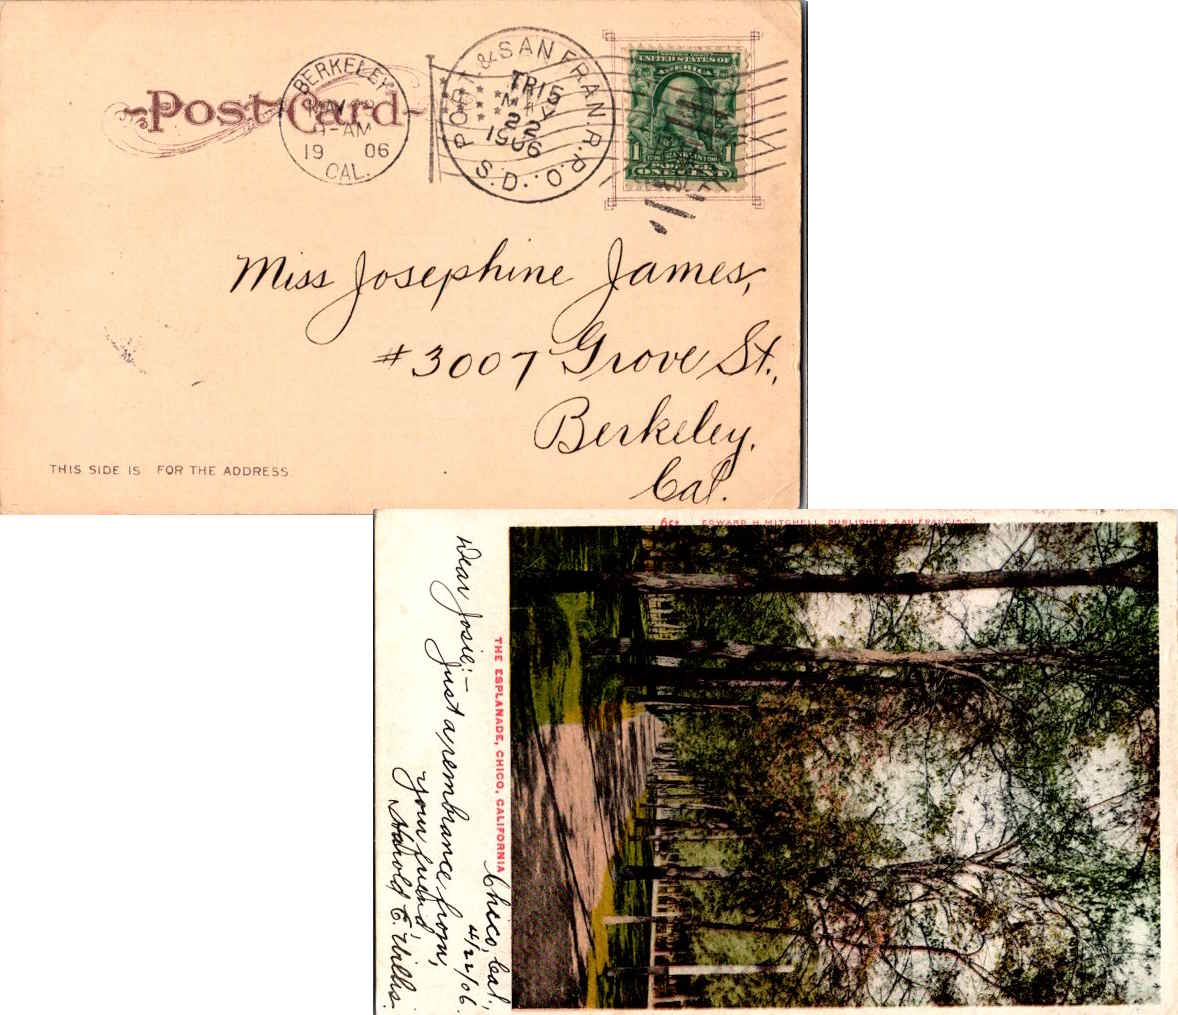 Post Card
BERKELEY
MAY
-AM
19 06
CAL.
PORT. & SAN FRAN. R.P.O.
TR15
MAY
22
1906
S.D.
UNITED STATES OF
AMERICA
1 FRANKLIN 1
POSTAGE
ONE CENT
Miss Josephine James,
#3007 Grove St.,
Berkeley,
Cal.
THIS SIDE IS FOR THE ADDRESS
EDWARD H. MITCHELL, PUBLISHER, SAN FRANCISCO
THE ESPLANADE, CHICO, CALIFORNIA
Chico, Cal.,
/22/06.
Dear Josie:—
Just a rembrance from,
your friend,
Harold E. Willis.